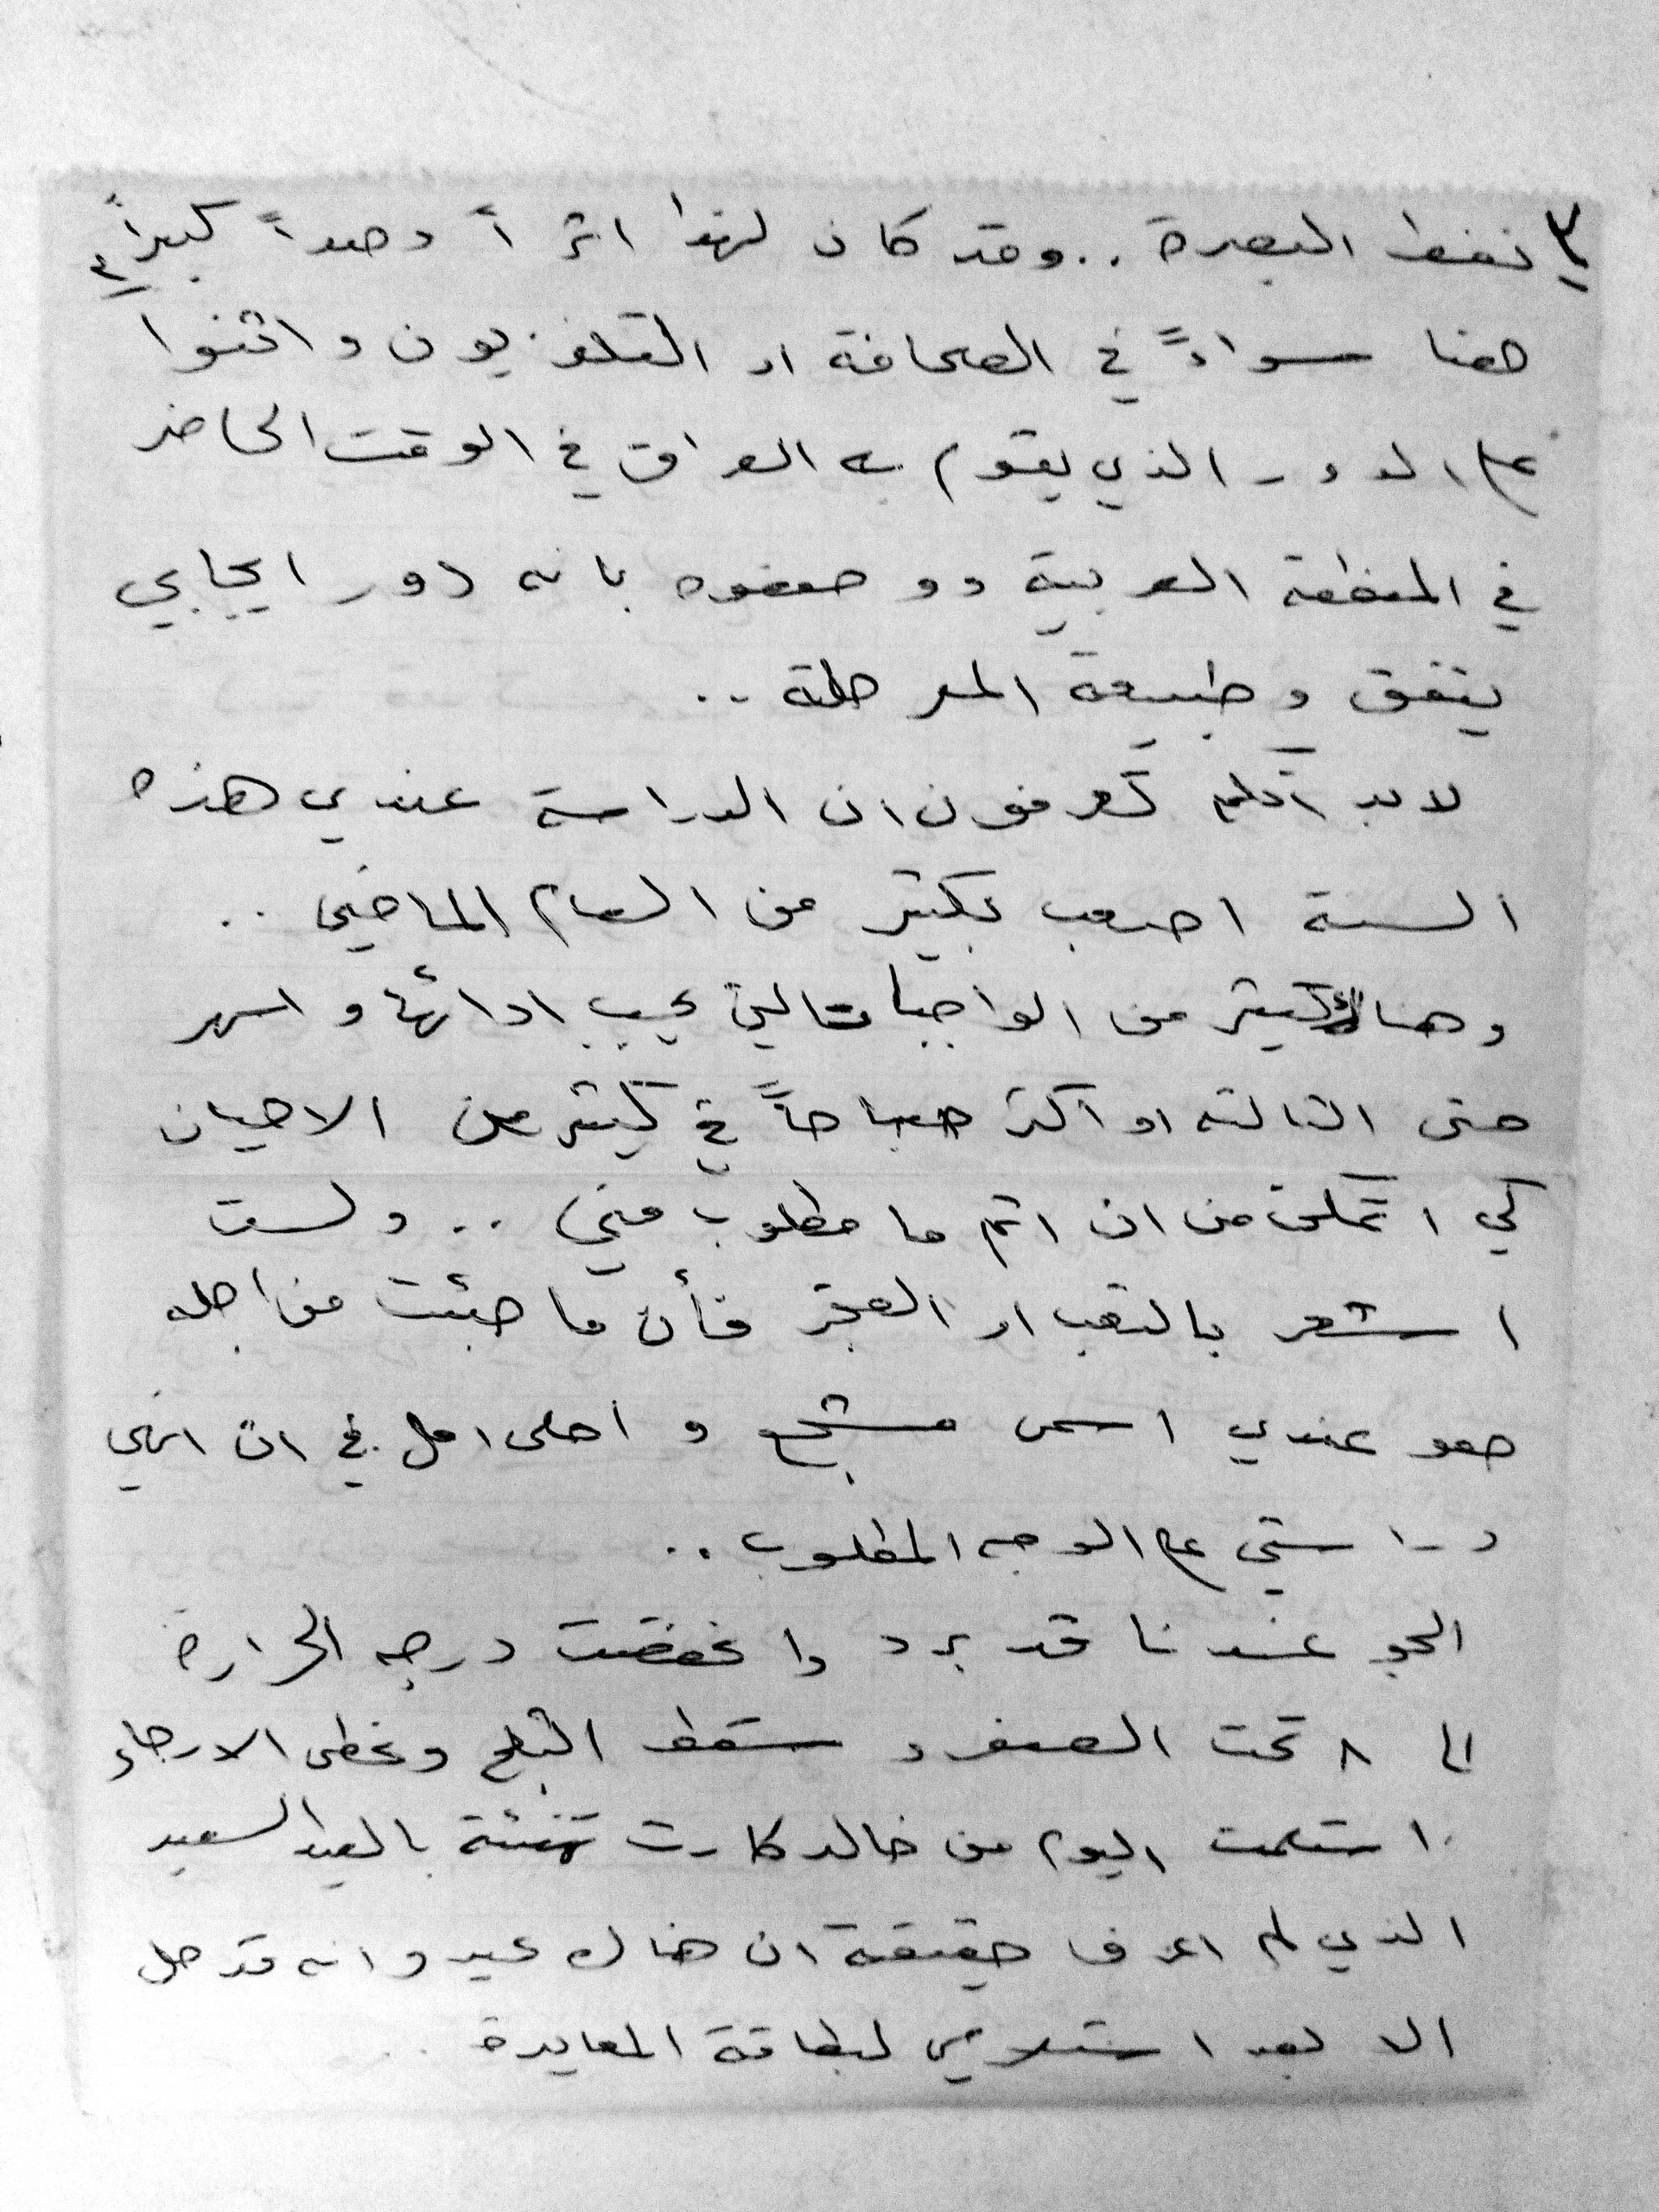 في نفط البصرة .. وقد كان لهذا اثراً وصداً كبيراً
هنا سواءً في الصحافة او التلفزيون واثنوا
على الدور الذي يقوم به العراق في الوقت الحاضر
في المنطقة العربية ووصفوه بانه دور ايجابي
يتفق وطبيعة المرحلة ..
لابد انكم تعرفون ان الدراسة عندي هذه
السنة اصعب بكثير من العام الماضي ..
وهناك كثير من الواجبات التي يجب ادائها واسهر
حتى الثالثه او اكثر صباحاً في كثير من الاحيان
كي اتمكن من ان اتم ما مطلوب مني .. ولست
اشعر بالتعب او العجز فأن ما جئت من اجله
هو عندي اسمى مشجع و احلى امل في ان انهي
دراستي على الوجه المطلوب ..
الجو عندنا قد برد وانخفضت درجه الحرارة
الى ٨ تحت الصفر و سقط الثلج وغطى الارجاء
استلمت اليوم من خالد كارت تهنئة بالعيد السعيد
الذي لم اعرف حقيقة ان هناك عيد وانه قد حل
الا بعد استلامي لبطاقة المعايدة ..